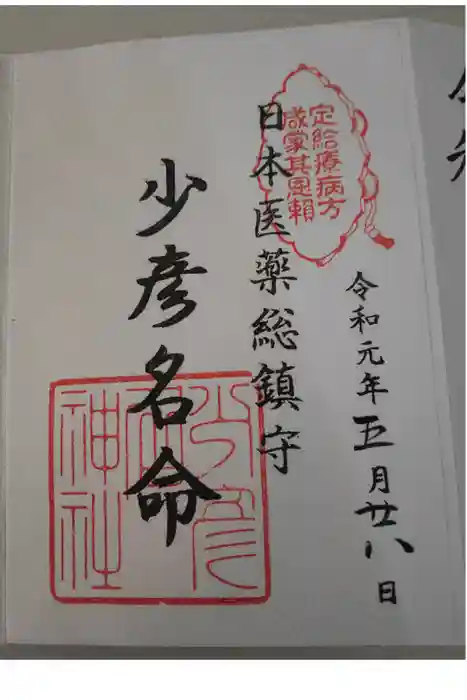 令和元年五月廿八日
定給療病方
咸蒙其恩頼
日本医薬総鎮守
少彦名命
少彦
名
神社